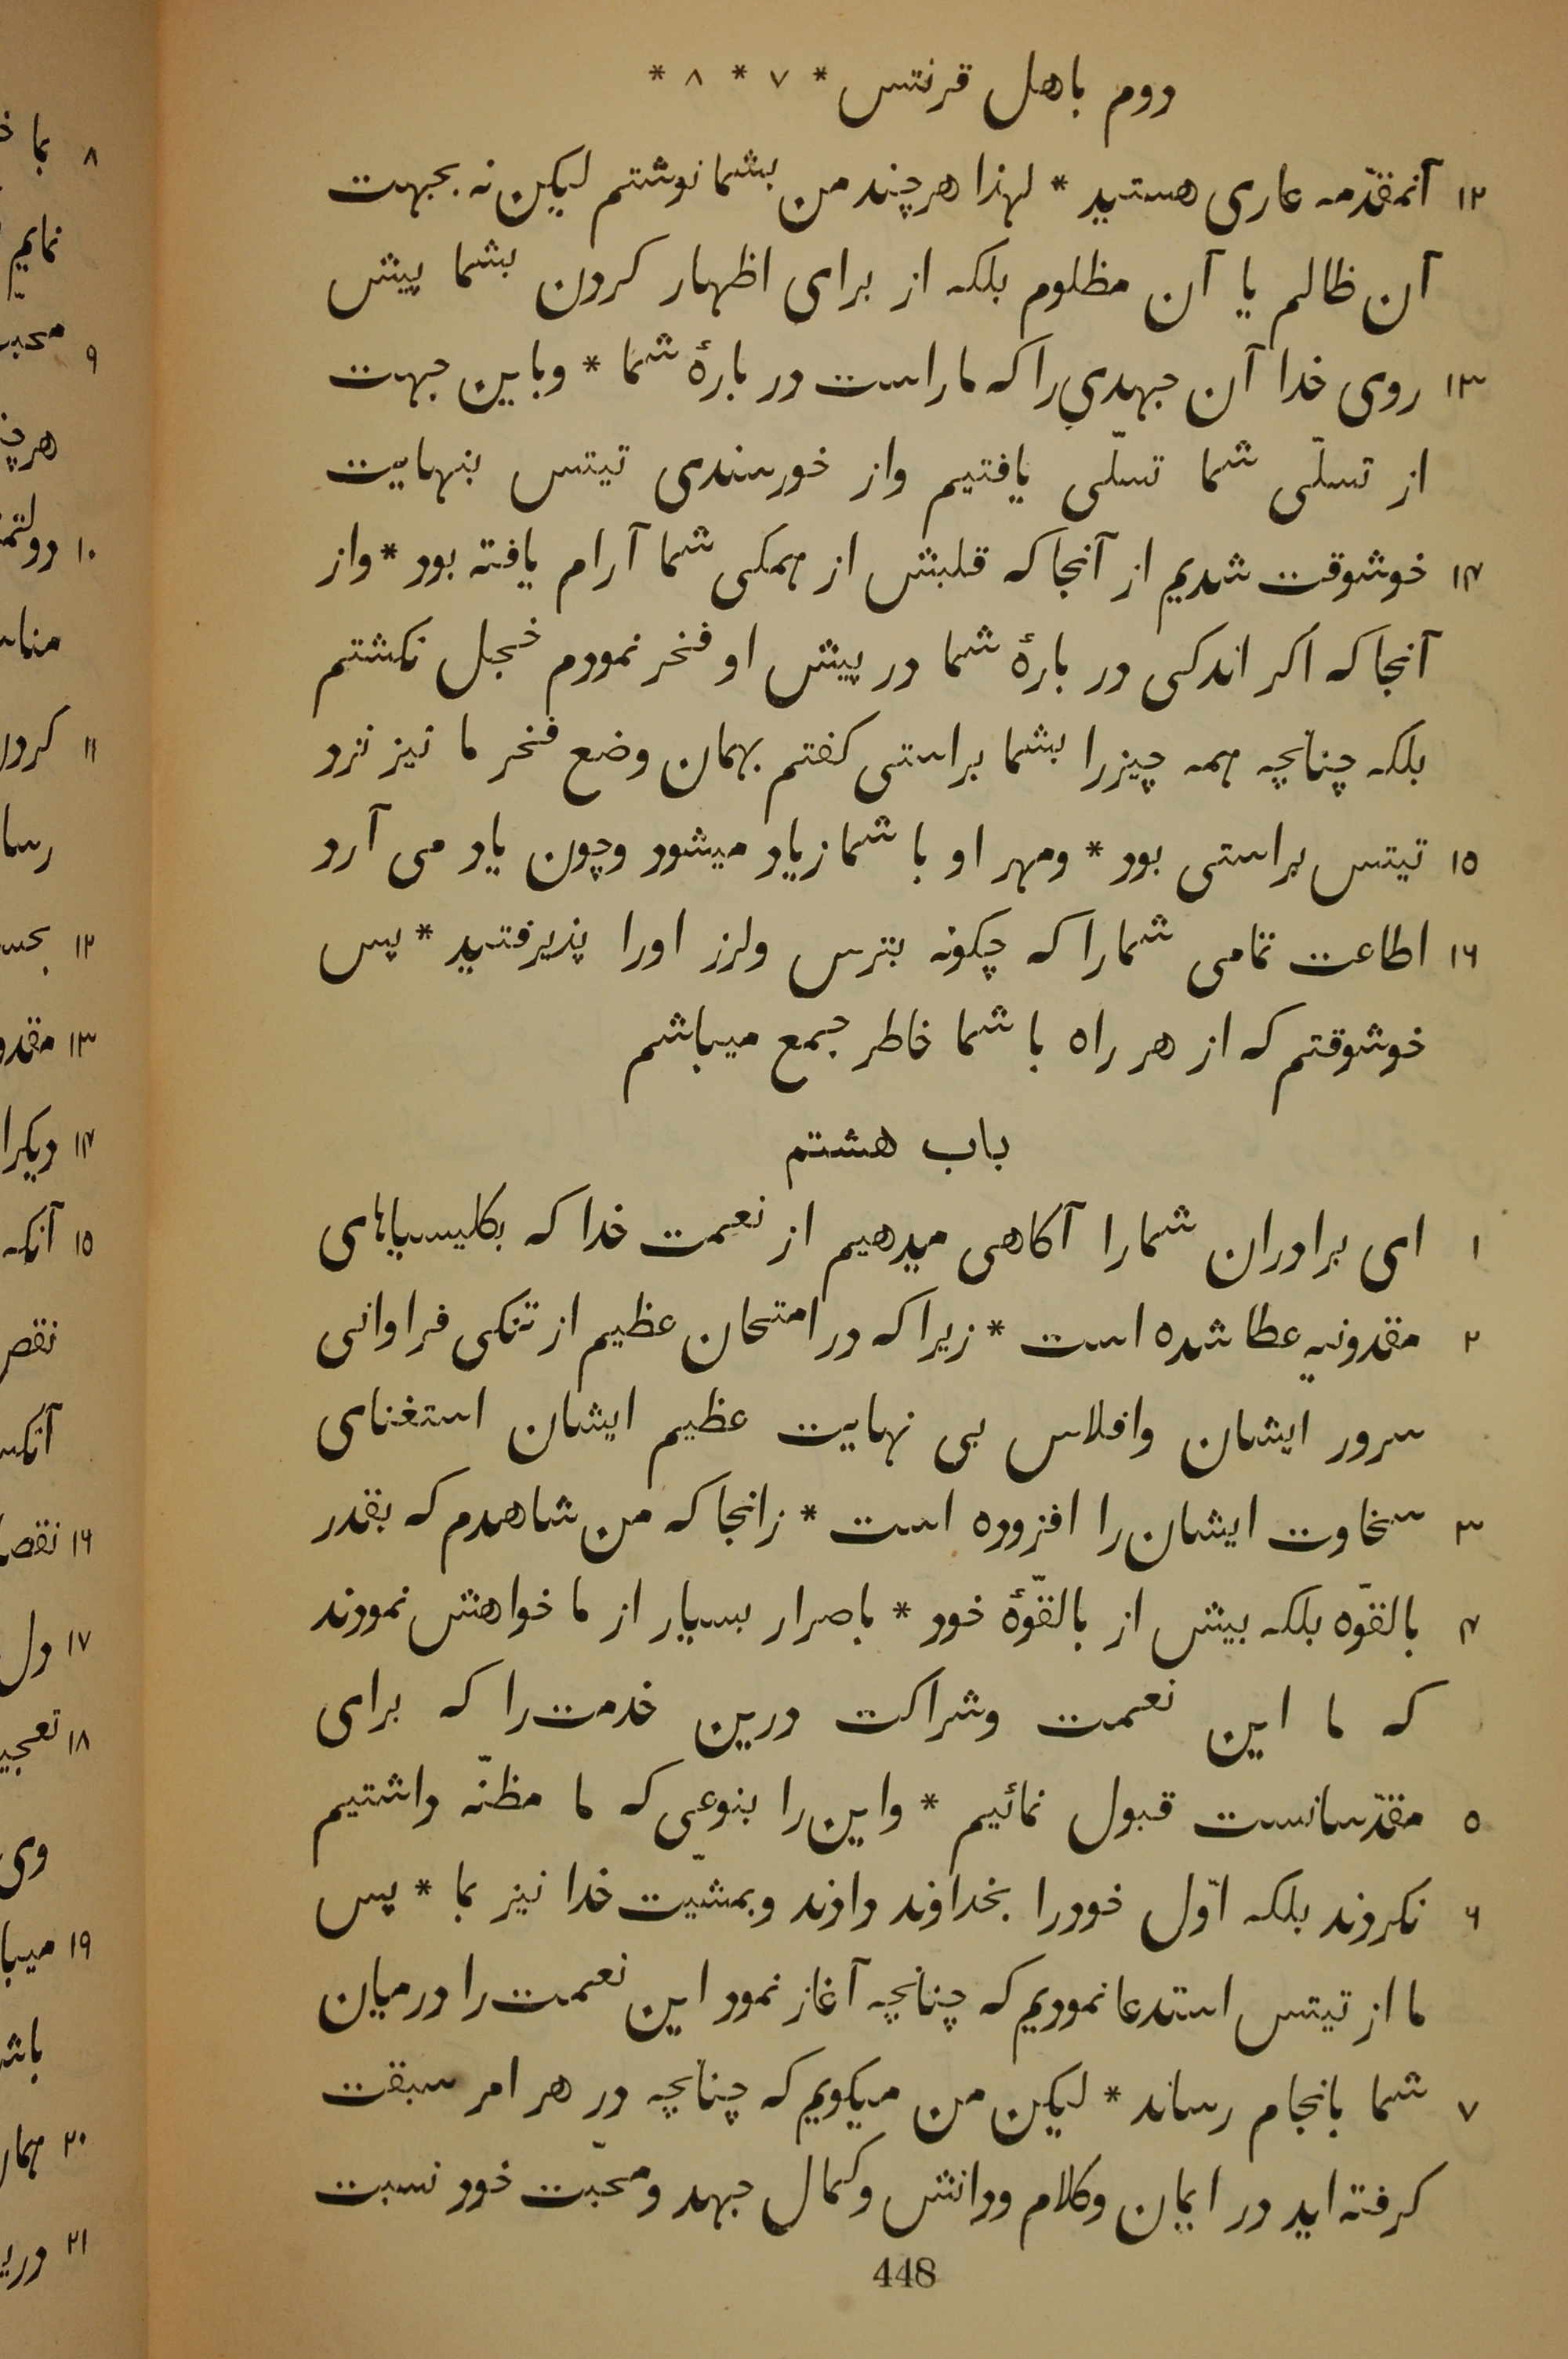 دوم باهل قرنتس * ٧ * ٨ *
١٢ آنمقدّمه عاری هستید * لهذا هرچند من بشما نوشتم لیکن نه بجهت
آن ظالم یا آن مظلوم بلکه از برای اظهار کردن بشما پیش
١٣ روی خدا آن جهدی را که ماراست در بارهٔ شما * وباین جهت
از تسلّی شما تسلّی یافتیم واز خورسندی تیتس بنهایت
١٤ خوشوقت شدیم از آنجا که قلبش از همکی شما آرام یافته بود * واز
آنجا که اکر اندکی در بارهٔ شما در پیش او فخر نمودم خجل نکشتم
بلکه چنانچه همه چیزرا بشما براستی کفتم بهمان وضع فخر ما نیز نزد
١٥ تیتس براستی بود * ومهر او با شما زیاد میشود وچون یاد می آرد
١٦ اطاعت تمامی شمارا که چکونه بترس ولرز اورا پذیرفتید * پس
خوشوقتم که از هر راه با شما خاطر جمع میباشم
باب هشتم
١ ای برادران شمارا آکاهی میدهیم از نعمت خدا که بکلیسیاهای
٢ مقدونیه عطا شده است * زیرا که در امتحان عظیم از تنکی فراوانی
سرور ایشان وافلاس بی نهایت عظیم ایشان استغنای
٣ سخاوت ایشان را افزوده است * زانجا که من شاهدم که بقدر
٤ بالقوّه بلکه بیش از بالقوّهٔ خود * باصرار بسیار از ما خواهش نمودند
که ما این نعمت وشراکت درین خدمت را که برای
٥ مقدّسانست قبول نمائیم * واین را بنوعی که ما مظنّه داشتیم
٦ نکردند بلکه اوّل خودرا بخداوند دادند وبمشیّت خدا نیز بما * پس
ما از تیتس استدعا نمودیم که چنانچه آغاز نمود این نعمت را در میان
٧ شما بانجام رساند * لیکن من میکویم که چنانچه در هر امر سبقت
کرفته اید در ایمان وکلام ودانش وکمال جهد ومحبّت خود نسبت
448